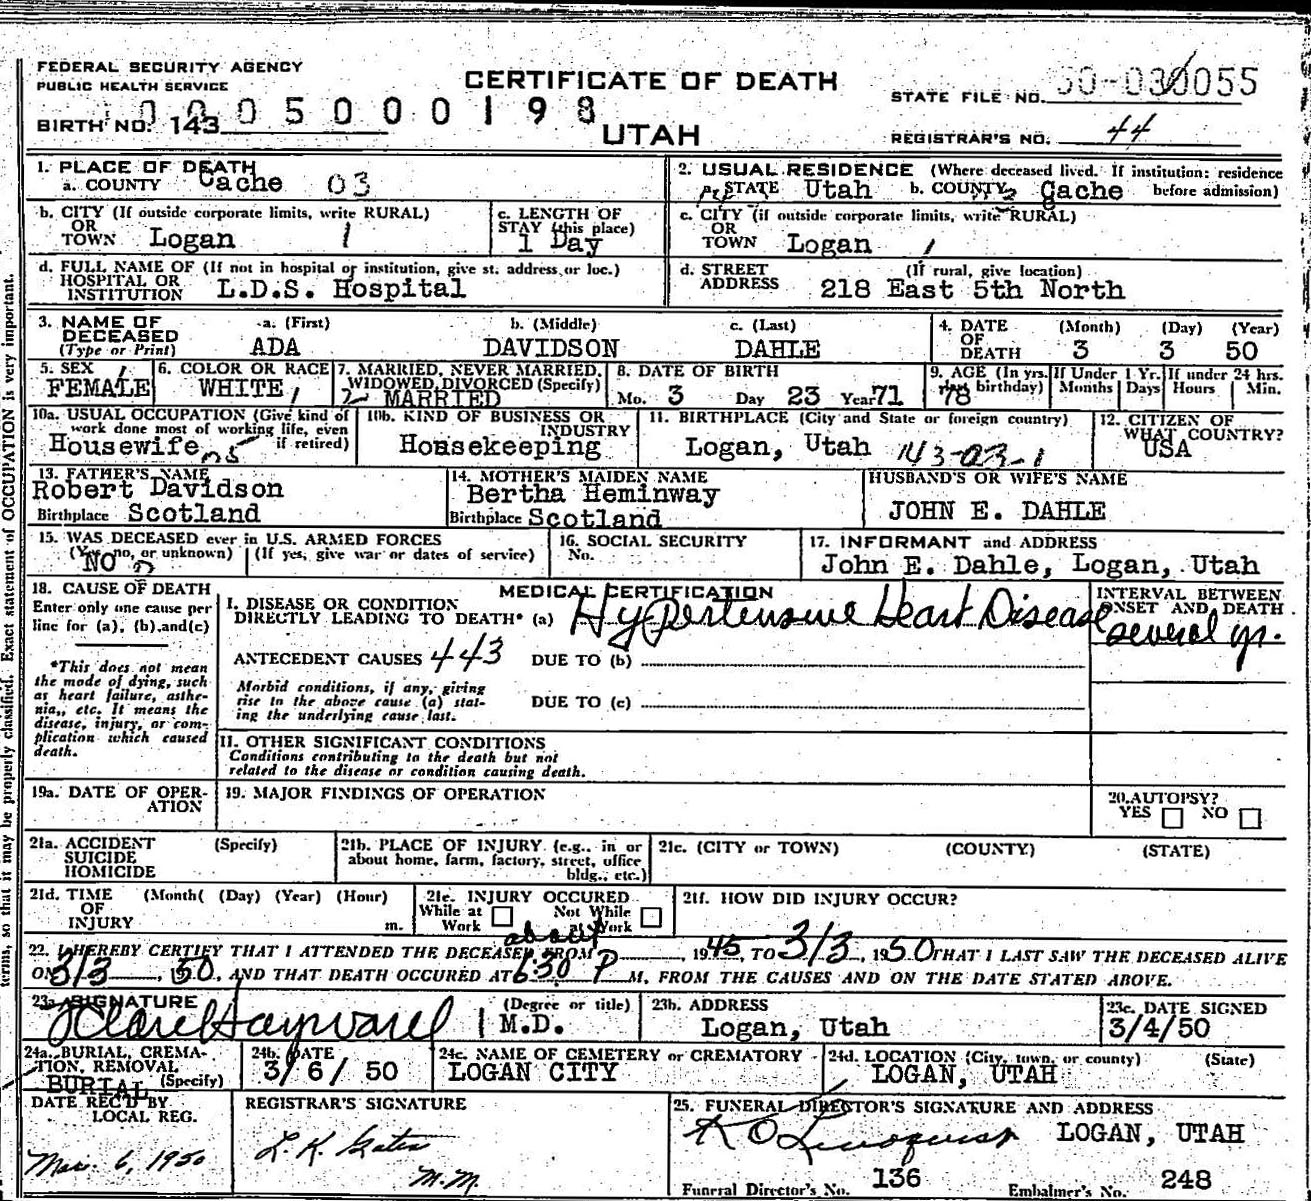 FEDERAL SECURITY AGENCY
PUBLIC HEALTH SERVICE
CERTIFICATE OF DEATH
UTAH
STATE FILE NO. 50-030055
0005000198
BIRTH NO. 143
REGISTRAR'S NO. 44
1. PLACE OF DEATH
a. COUNTY Cache 03
2. USUAL RESIDENCE (Where deceased lived. If institution: residence before admission)
STATE Utah b. COUNTY Cache
b. CITY (If outside corporate limits, write RURAL)
OR TOWN Logan 1
c. LENGTH OF STAY (this place)
1 Day
c. CITY (if outside corporate limits, write RURAL)
OR TOWN Logan
d. FULL NAME OF (If not in hospital or institution, give st. address or loc.)
HOSPITAL OR INSTITUTION L.D.S. Hospital
d. STREET ADDRESS (If rural, give location)
218 East 5th North
3. NAME OF DECEASED (Type or Print)
a. (First) b. (Middle) c. (Last)
ADA DAVIDSON DAHLE
4. DATE OF DEATH (Month) (Day) (Year)
3 3 50
5. SEX
FEMALE
6. COLOR OR RACE
WHITE
7. MARRIED, NEVER MARRIED, WIDOWED, DIVORCED (Specify)
2 MARRIED
8. DATE OF BIRTH
Mo. 3 Day 23 Year 71
9. AGE (In yrs. last birthday) If Under 1 Yr. If under 24 hrs.
78 Months Days Hours Min.
10a. USUAL OCCUPATION (Give kind of work done most of working life, even if retired)
Housewife
10b. KIND OF BUSINESS OR INDUSTRY
Housekeeping
11. BIRTHPLACE (City and State or foreign country)
Logan, Utah 143-03-1
12. CITIZEN OF WHAT COUNTRY?
USA
13. FATHER'S NAME
Robert Davidson
Birthplace Scotland
14. MOTHER'S MAIDEN NAME
Bertha Heminway
Birthplace Scotland
HUSBAND'S OR WIFE'S NAME
JOHN E. DAHLE
15. WAS DECEASED ever in U.S. ARMED FORCES
(Yes, no, or unknown) (If yes, give war or dates of service)
NO
16. SOCIAL SECURITY No.
17. INFORMANT and ADDRESS
John E. Dahle, Logan, Utah
18. CAUSE OF DEATH
Enter only one cause per line for (a), (b), and (c)
MEDICAL CERTIFICATION
I. DISEASE OR CONDITION
DIRECTLY LEADING TO DEATH* (a) Hypertensive Heart Disease
INTERVAL BETWEEN ONSET AND DEATH
several yr.
*This does not mean the mode of dying, such as heart failure, asthenia, etc. It means the disease, injury, or complication which caused death.
ANTECEDENT CAUSES 443 DUE TO (b)
Morbid conditions, if any, giving rise to the above cause (a) stating the underlying cause last.
DUE TO (c)
II. OTHER SIGNIFICANT CONDITIONS
Conditions contributing to the death but not related to the disease or condition causing death.
19a. DATE OF OPERATION
19. MAJOR FINDINGS OF OPERATION
20. AUTOPSY?
YES NO
21a. ACCIDENT (Specify)
SUICIDE
HOMICIDE
21b. PLACE OF INJURY (e.g., in or about home, farm, factory, street, office bldg., etc.)
21c. (CITY or TOWN) (COUNTY) (STATE)
21d. TIME OF INJURY (Month) (Day) (Year) (Hour) m.
21e. INJURY OCCURED
While at Work Not While at Work
21f. HOW DID INJURY OCCUR?
22. I HEREBY CERTIFY THAT I ATTENDED THE DECEASED FROM about, 1945, TO 3/3, 1950 THAT I LAST SAW THE DECEASED ALIVE
ON 3/3, 1950, AND THAT DEATH OCCURED AT 6:30 P M, FROM THE CAUSES AND ON THE DATE STATED ABOVE.
23a. SIGNATURE (Degree or title)
J Clare Hayward M.D.
23b. ADDRESS
Logan, Utah
23c. DATE SIGNED
3/4/50
24a. BURIAL, CREMATION, REMOVAL (Specify)
BURIAL
24b. DATE
3/6/50
24c. NAME OF CEMETERY or CREMATORY
LOGAN CITY
24d. LOCATION (City, town, or county) (State)
LOGAN, UTAH
DATE REC'D BY LOCAL REG.
Mar. 6, 1950
REGISTRAR'S SIGNATURE
L. K. Gates
M.M.
25. FUNERAL DIRECTOR'S SIGNATURE AND ADDRESS
K O Lindquist LOGAN, UTAH
Funeral Director's No. 136 Embalmer's No. 248
terms, so that it may be properly classified. Exact statement of OCCUPATION is very important.